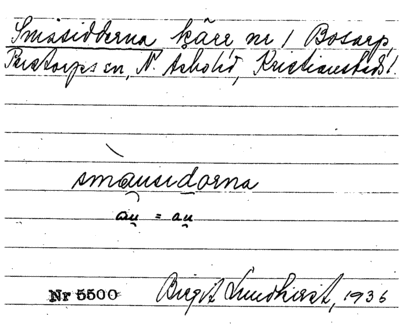 Småsidorna kärr nr 1 Bosarp,
Perstorps sn, N. Åsbo hd, Kristianstads l.
småusidorna
au = au
Nr 5500
Birgit Lundkvist, 1936